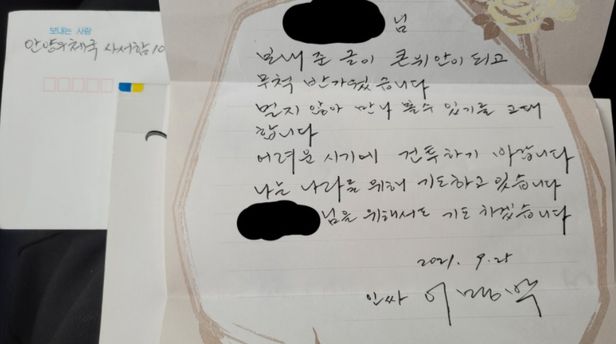 보내는 사람
안양우체국 사서함 10
님
보내 준 글이 큰 위안이 되고
무척 반가웠습니다
멀지 않아 만나 볼 수 있기를 고대
합니다
어려운 시기에 건투하기 바랍니다
나는 나라를 위해 기도하고 있습니다
님을 위해서도 기도 하겠습니다
2021. 9. 25
인싸 이명박